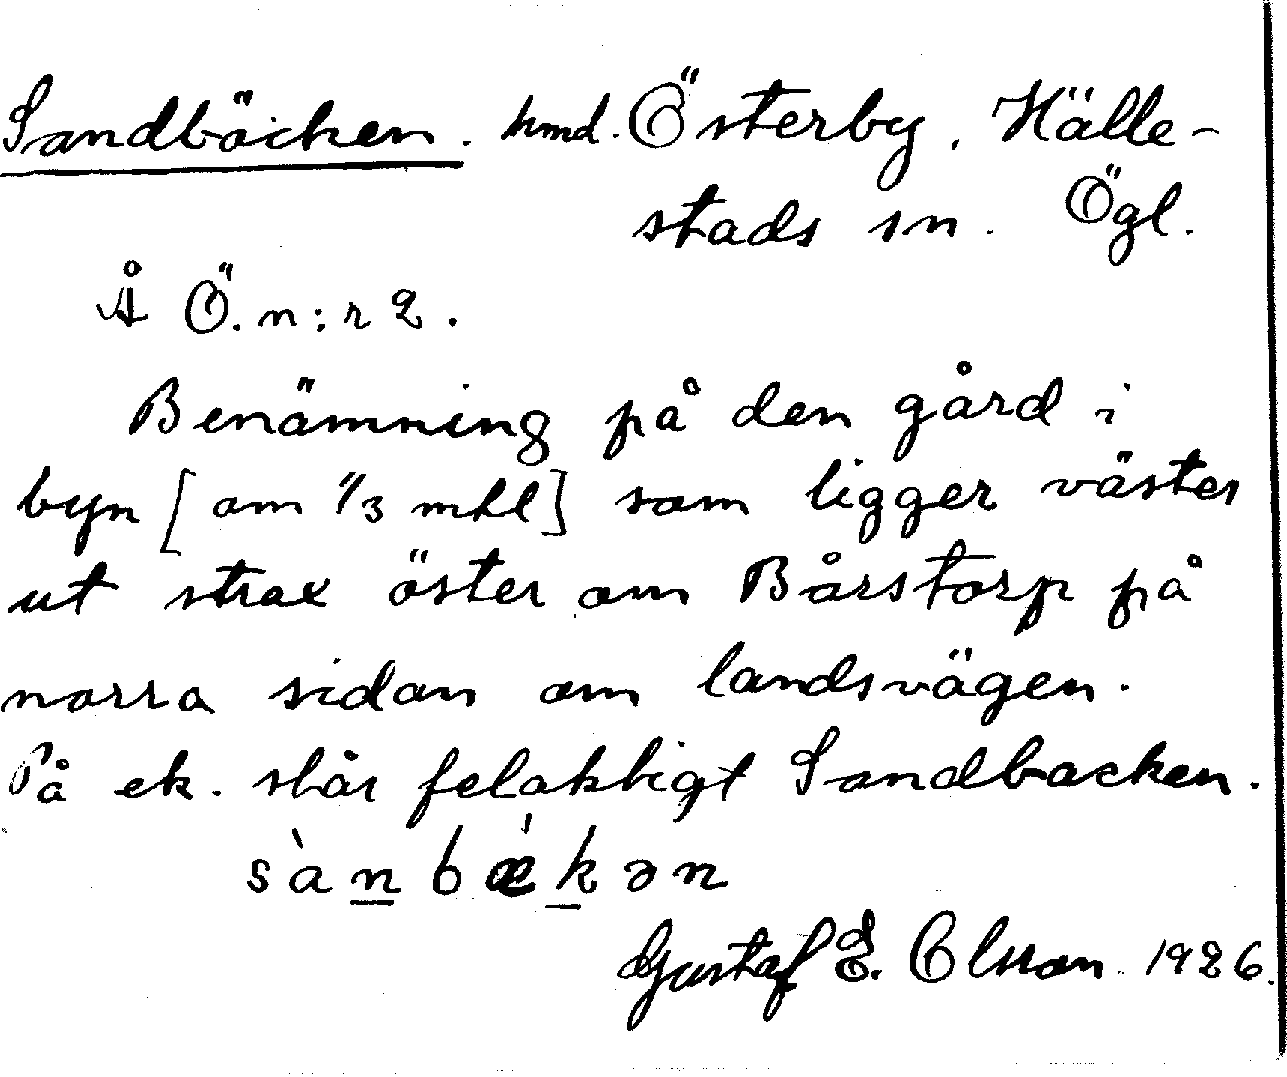 Sandbäcken. hmd. Österby, Hälle-
stads sn. Ögl.
Å Ö. n:r 2.
Benämning på den gård i
byn [om 1/3 mtl] som ligger väster
ut strax öster om Bårstorp på
norra sidan om landsvägen.
På ek. står felaktigt Sandbacken.
sànbækən
Gustaf E. Olsson 1926.